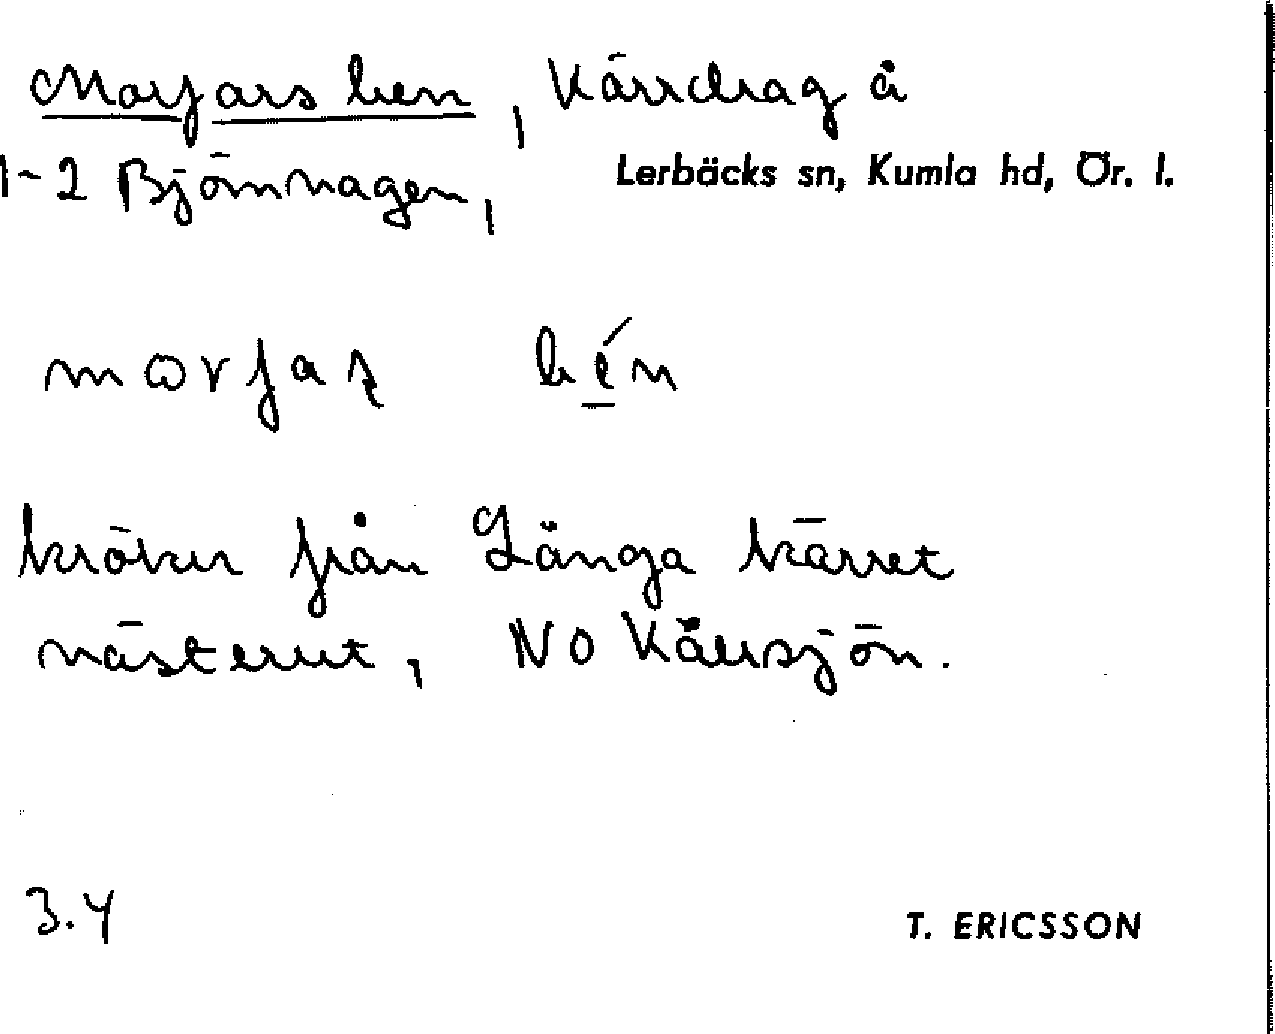 Morfars ben, Kärrdrag å
1-2 Björnhagen,
Lerbäcks sn, Kumla hd, Ör. l.
morfaʂ bén
kröker från Långa kärret
västerut, NO Kålsjön.
3.4
T. ERICSSON